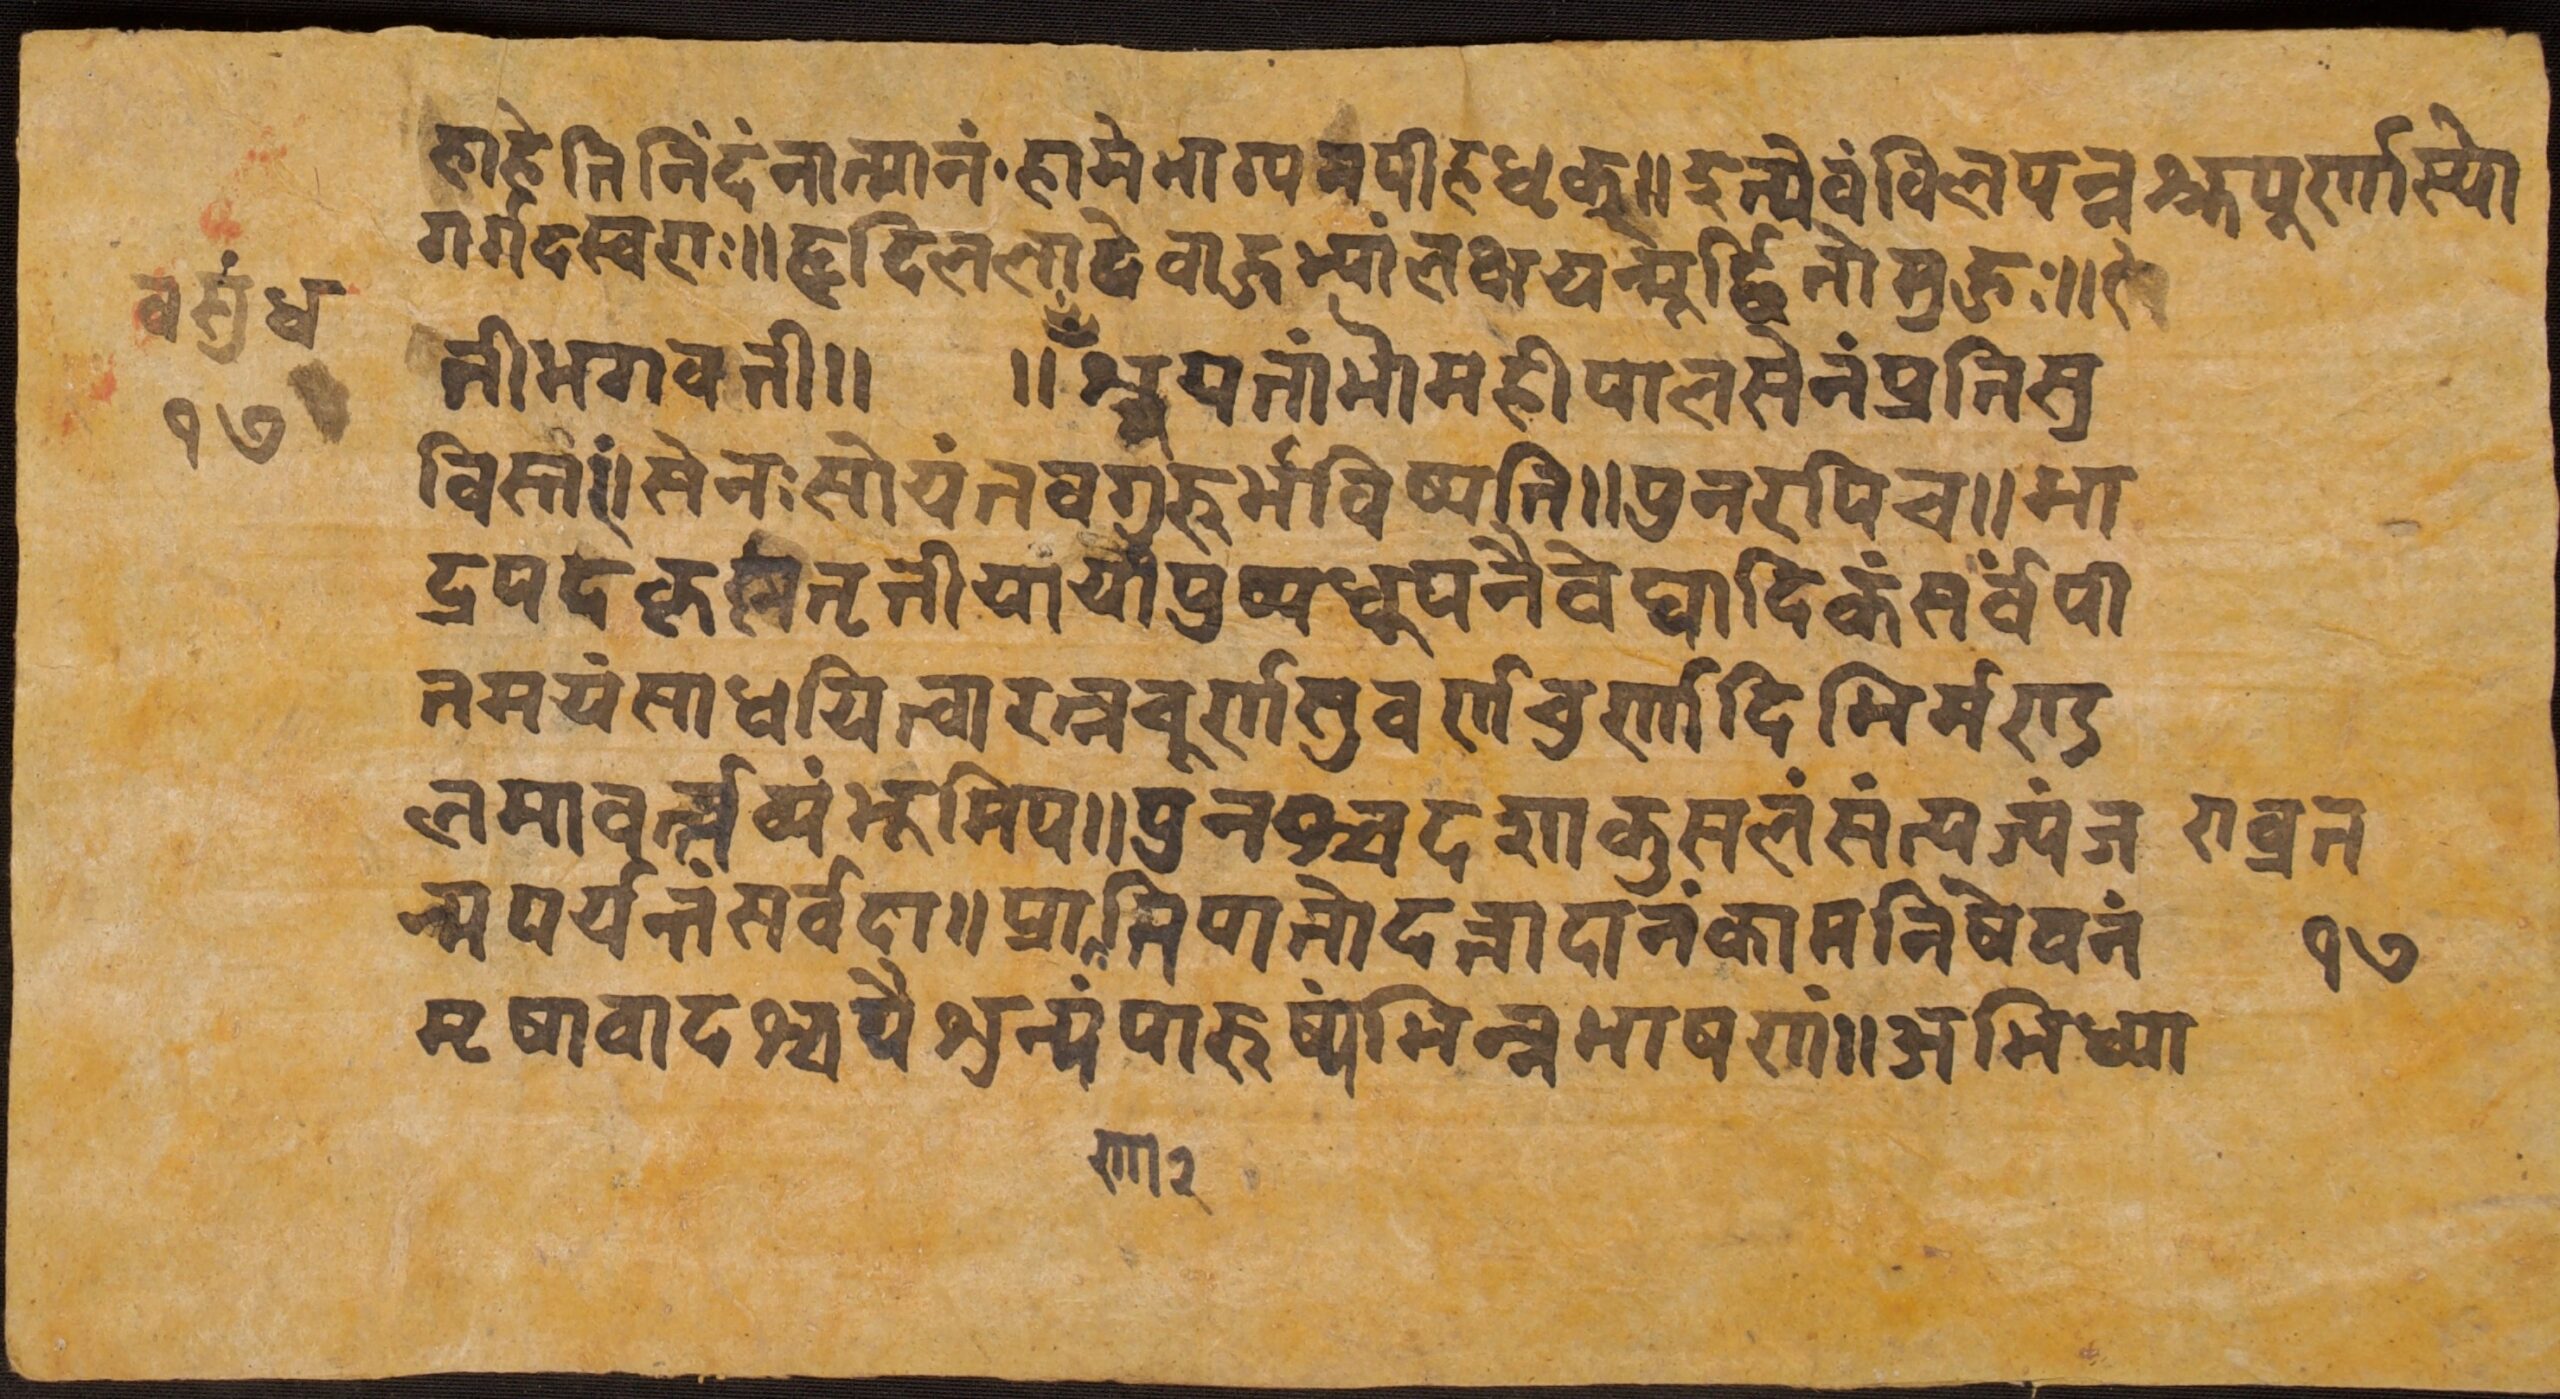 हाहेति निंदंनात्मानं॰हामे भाग्यमपीहधृक्॥ इत्येवंविलपन्नश्रुपुर्णास्यो
गर्गदस्वराः॥हृदिललाटेबाहुभ्यांलक्षयन्मूर्द्धिनोमुहुः॥
वसुंध
तीभगवती॥ ॥श्रूयतांभोमहीपालसेनंप्रतिसु
१७
विस्तरं॥सेनःसोयंतवगुरुर्भविष्यति॥पुनरपिच॥भा
द्रपदकृष्णतृतीयायांपुष्पधूपनैवेद्यादिकंसर्वंपी
तमयंसाधयित्वारत्नचूर्णसुवर्णचुर्णादिभिर्मण्ड
लमावर्त्तव्यंभूमिप॥पुनश्चदशाकुसलंसंत्यज्यंज राव्रत
न्मपर्यन्तंसर्वदा॥प्राणातिपातोदत्तादानंकामनिषेवनं १७
मृषावादश्चपैशुन्यंपारुष्यंभिन्नभाषणं॥अभिध्या
णा२